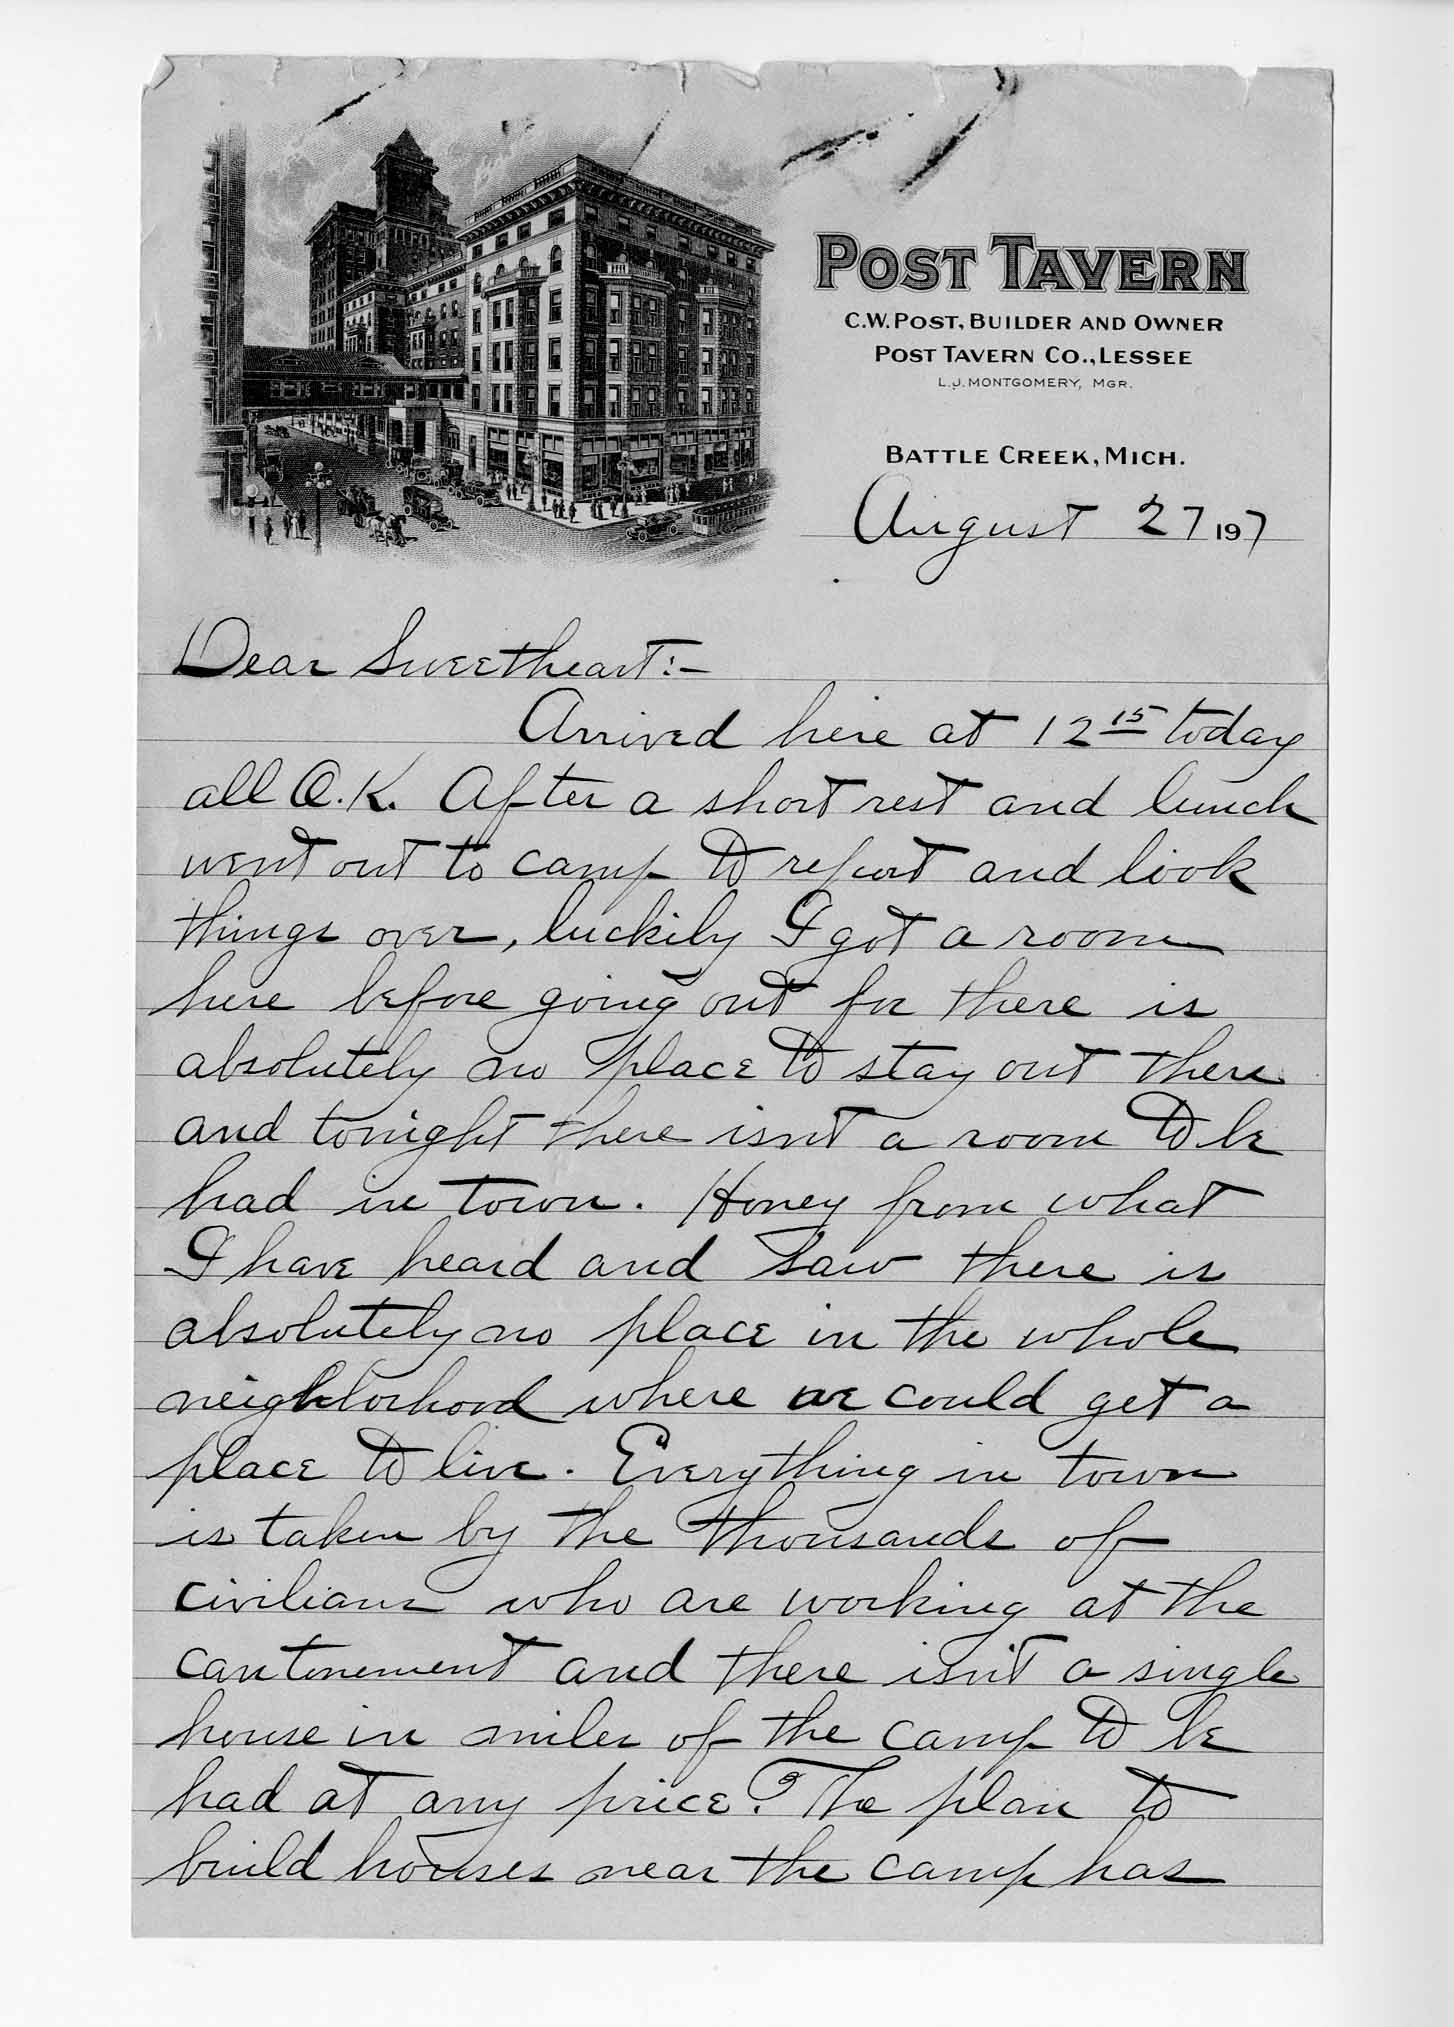 POST TAVERN
C.W. POST, BUILDER AND OWNER
POST TAVERN CO., LESSEE
L.J. MONTGOMERY, MGR.
BATTLE CREEK, MICH.
August 27 197
Dear Sweetheart:-
Arrived here at 12 15 today
all O.K. After a short rest and lunch
went out to camp to report and look
things over, luckily I got a room
here before going out for there is
absolutely no place to stay out there
and tonight there isnt a room to be
had in town. Honey from what
I have heard and saw there is
absolutely no place in the whole
neighborhood where we could get a
place to live. Everything in town
is taken by the thousands of
civilians who are working at the
cantonement and there isn't a single
house in miles of the camp to be
had at any price? The plan to
build houses near the camp has